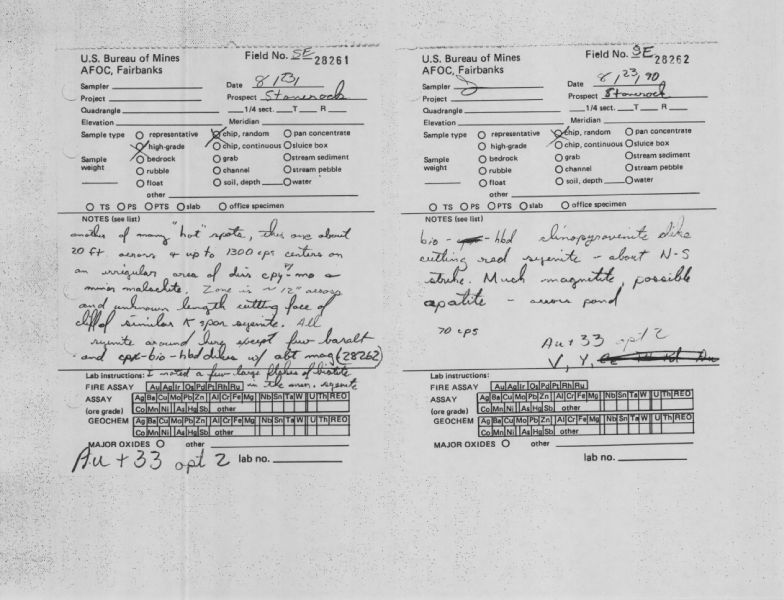 U.S. Bureau of Mines
AFOC, Fairbanks
Field No. SE 28261
Sampler
Date 8/23/
Project
Prospect Stonerock
Quadrangle
1/4 sect. T R
Elevation
Meridian
Sample type
representative
chip, random
pan concentrate
high-grade
chip, continuous
sluice box
Sample weight
bedrock
grab
stream sediment
rubble
channel
stream pebble
float
soil, depth
water
other
TS PS PTS slab office specimen
NOTES (see list)
another of many "hot" spots, this one about
20 ft across & up to 1300 cps centers on
an irregular area of diss cpy-mo &
minor malachite. Zone is ~ 12" across
and unknown length cutting face of
cliff of similar K spar syenite. All
syenite around here except few basalt
and cpx-bio-hbd dikes w/ abt mag (28262)
Lab instructions: I noted a few large flakes of biotite
in the syenite
FIRE ASSAY Au Ag Ir Os Pd Pt Rh Ru
ASSAY Ag Ba Cu Mo Pb Zn Al Cr Fe Mg Nb Sn Ta W U Th REO
(ore grade) Co Mn Ni As Hg Sb other
GEOCHEM Ag Ba Cu Mo Pb Zn Al Cr Fe Mg Nb Sn Ta W U Th REO
Co Mn Ni As Hg Sb other
MAJOR OXIDES other
Au + 33 opt 2 lab no.
U.S. Bureau of Mines
AFOC, Fairbanks
Field No. SE 28262
Sampler
Date 8/23/90
Project
Prospect Stonerock
Quadrangle
1/4 sect. T R
Elevation
Meridian
Sample type
representative
chip, random
pan concentrate
high-grade
chip, continuous
sluice box
Sample weight
bedrock
grab
stream sediment
rubble
channel
stream pebble
float
soil, depth
water
other
TS PS PTS slab office specimen
NOTES (see list)
bio - hbd clinopyroxenite dike
cutting red syenite - about N-S
strike. Much magnetite, possible
apatite - across pond
70 cps
Au + 33 opt 2
V, Y,
Lab instructions:
FIRE ASSAY Au Ag Ir Os Pd Pt Rh Ru
ASSAY Ag Ba Cu Mo Pb Zn Al Cr Fe Mg Nb Sn Ta W U Th REO
(ore grade) Co Mn Ni As Hg Sb other
GEOCHEM Ag Ba Cu Mo Pb Zn Al Cr Fe Mg Nb Sn Ta W U Th REO
Co Mn Ni As Hg Sb other
MAJOR OXIDES other
lab no.